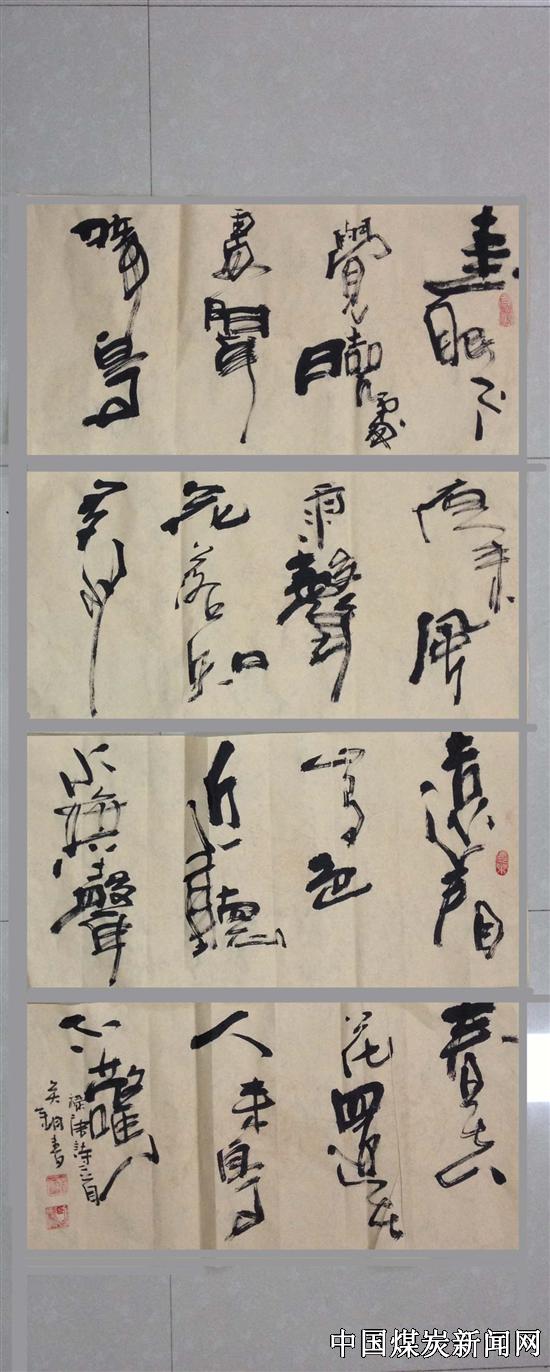 春眠不
覺曉處
處聞
啼鳥
夜来風
雨聲
花落知
多少
遠看
山有色
近聽
水無聲
春去
花還在
人来鳥
不驚
唐詩二首
書
中国煤炭新闻网